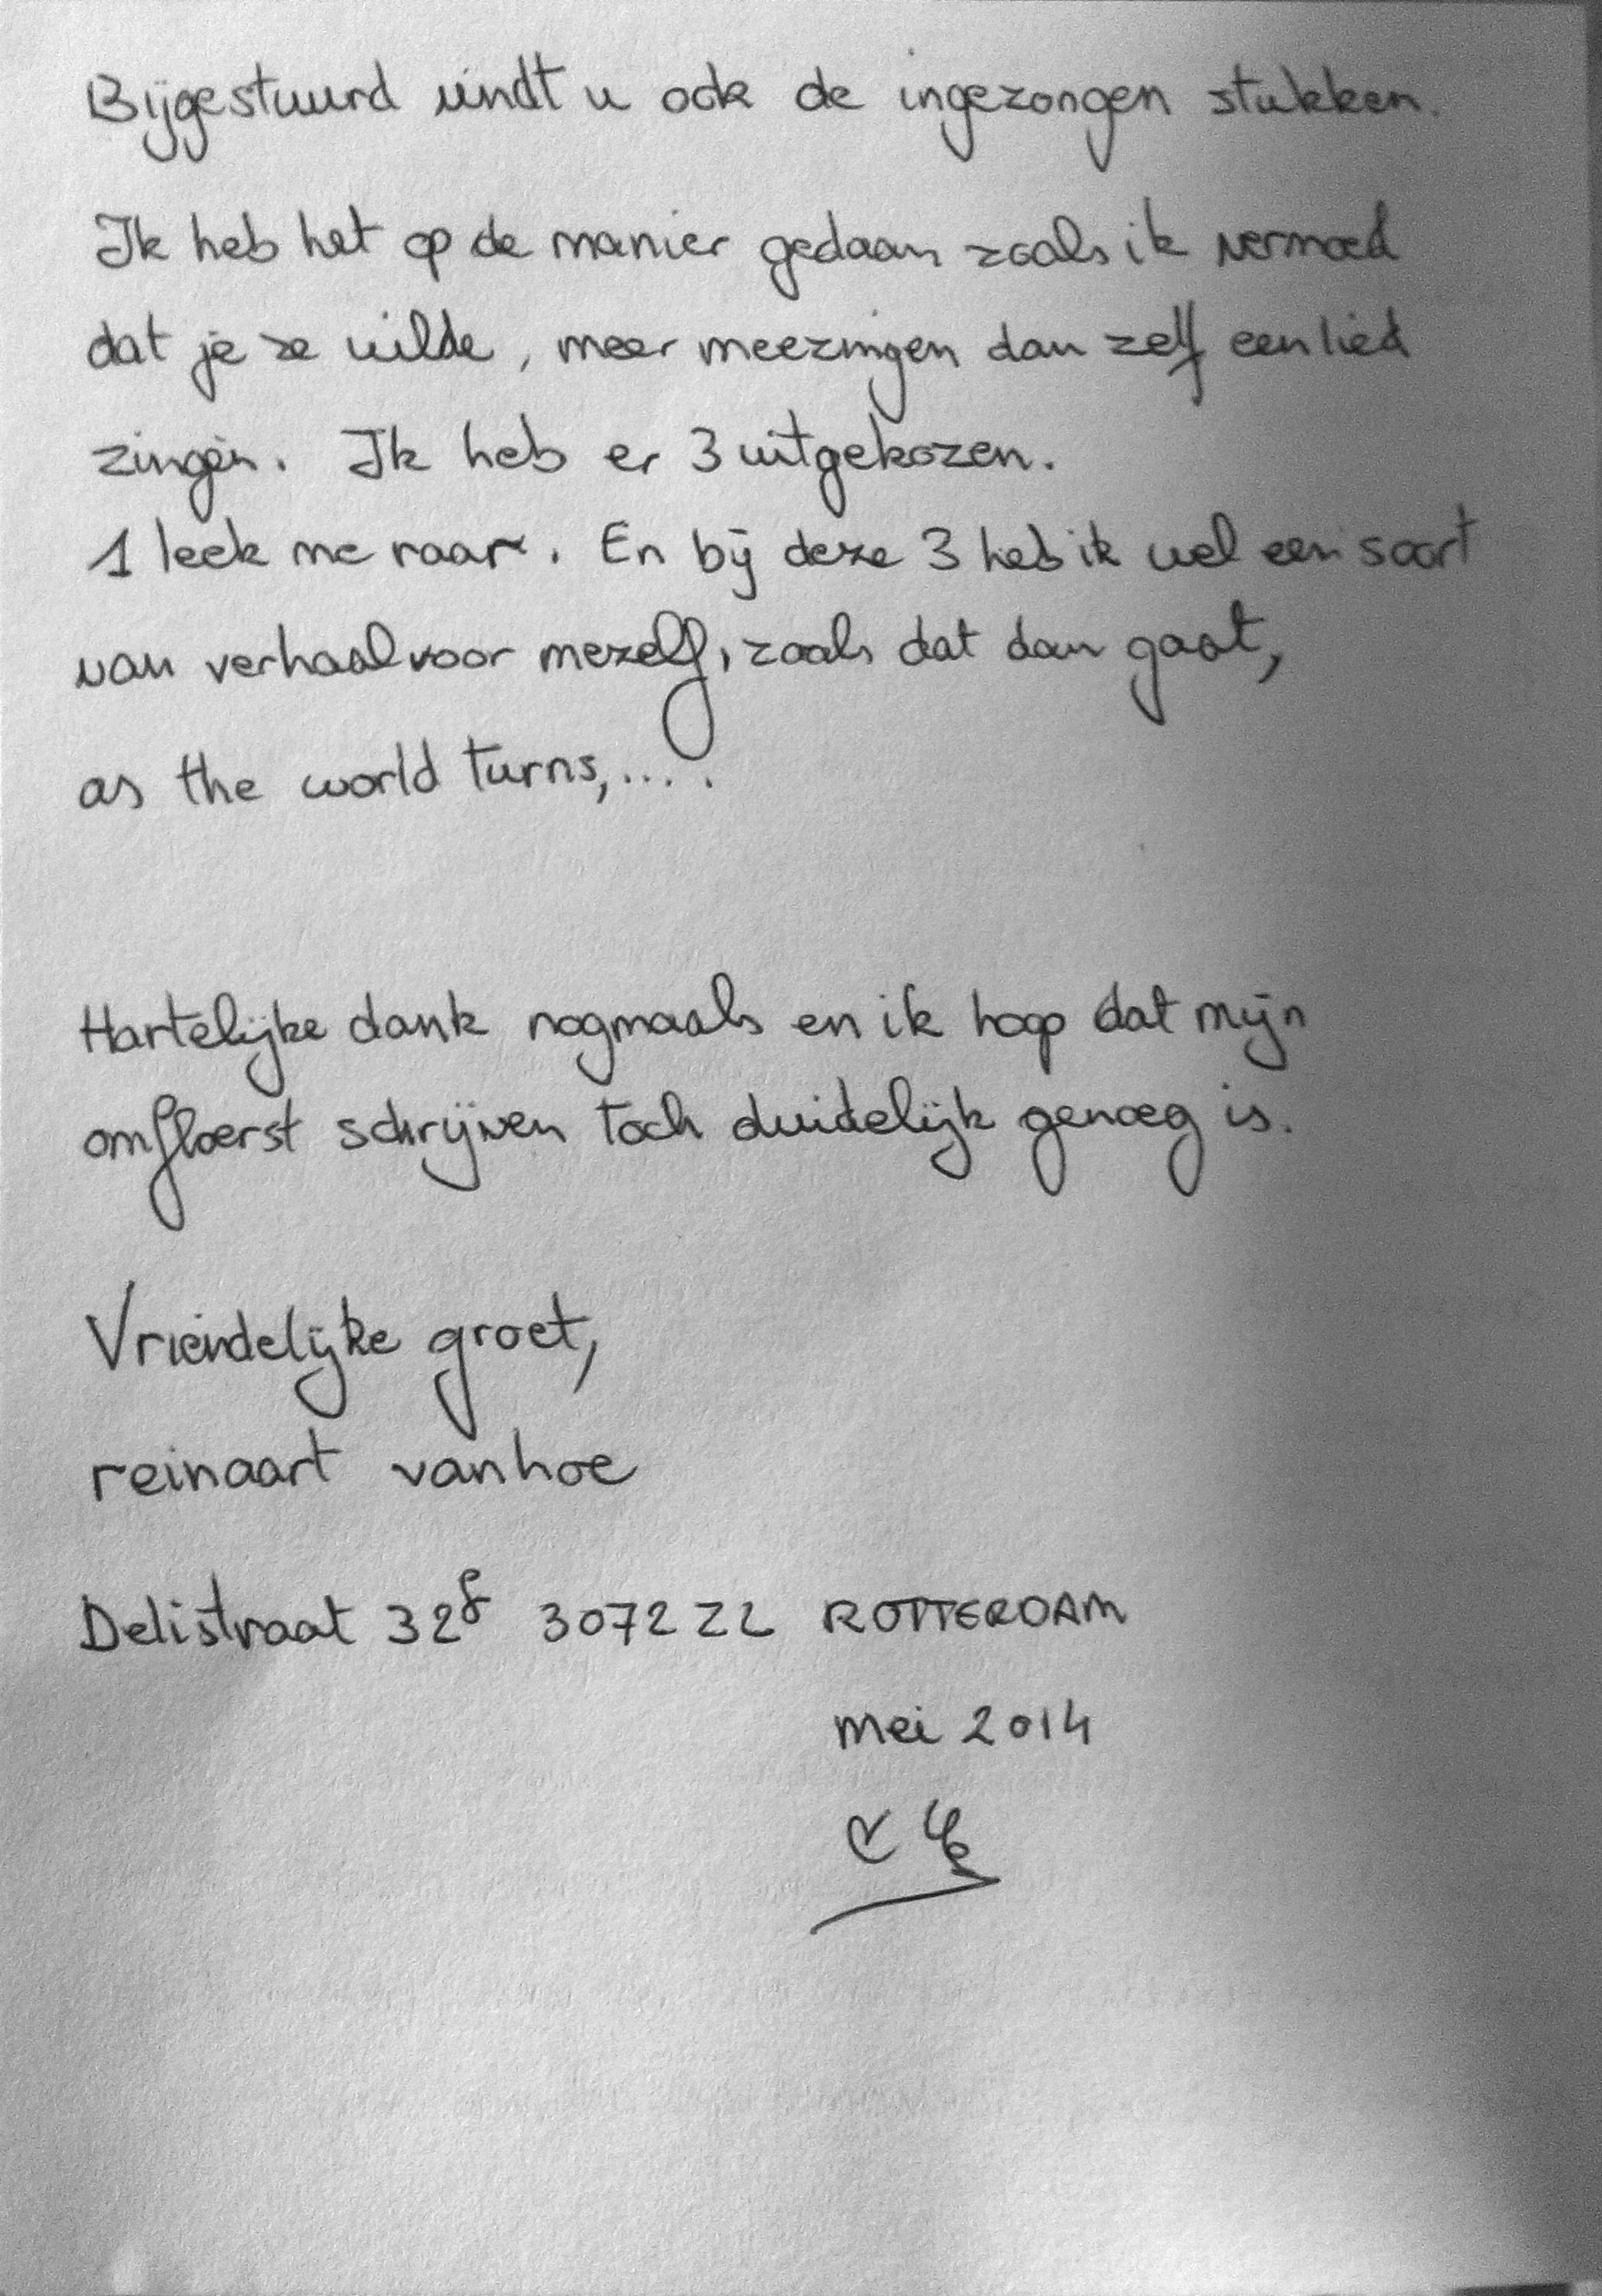 Bijgestuurd vindt u ook de ingezongen stukken.
Ik heb het op de manier gedaan zoals ik vermoed
dat je ze wilde, meer meezingen dan zelf een lied
zingen. Ik heb er 3 uitgekozen.
1 leek me raar. En bij deze 3 heb ik wel een soort
van verhaal voor mezelf, zoals dat dan gaat,
as the world turns,....
Hartelijke dank nogmaals en ik hoop dat mijn
omfloerst schrijven toch duidelijk genoeg is.
Vriendelijke groet,
reinaart vanhoe
Delistraat 32f 3072 ZL ROTTERDAM
mei 2014